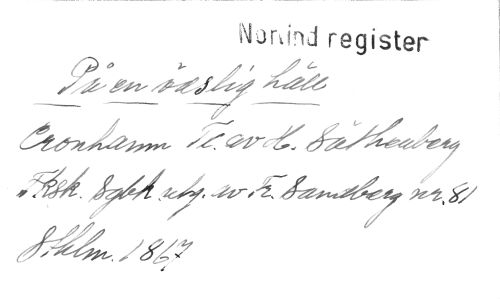 Norlind register
På en ödslig häll
Cronhamm T. av H. Säthenberg
Fksk. Sgbk utg. av Fr. Sandberg nr. 81
Sthlm. 1867